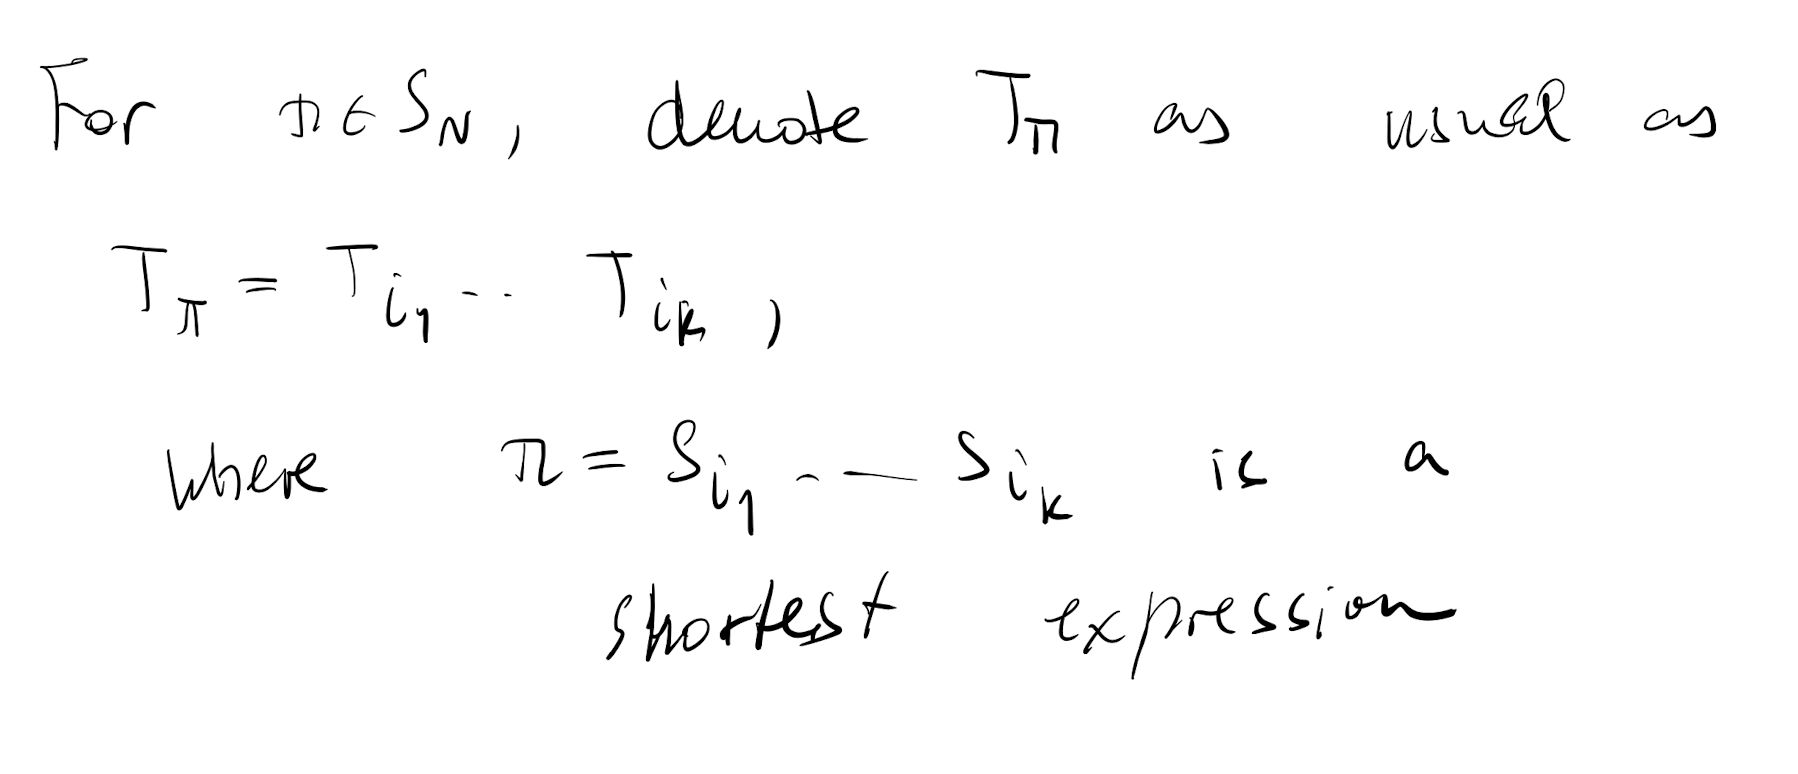 For π ∈ S_N, denote T_π as usual as
T_π = T_{i_1} ... T_{i_k},
where π = s_{i_1} ... s_{i_k} is a
shortest expression